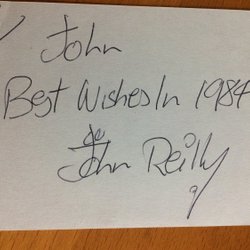 John
Best Wishes In 1984
John Reilly